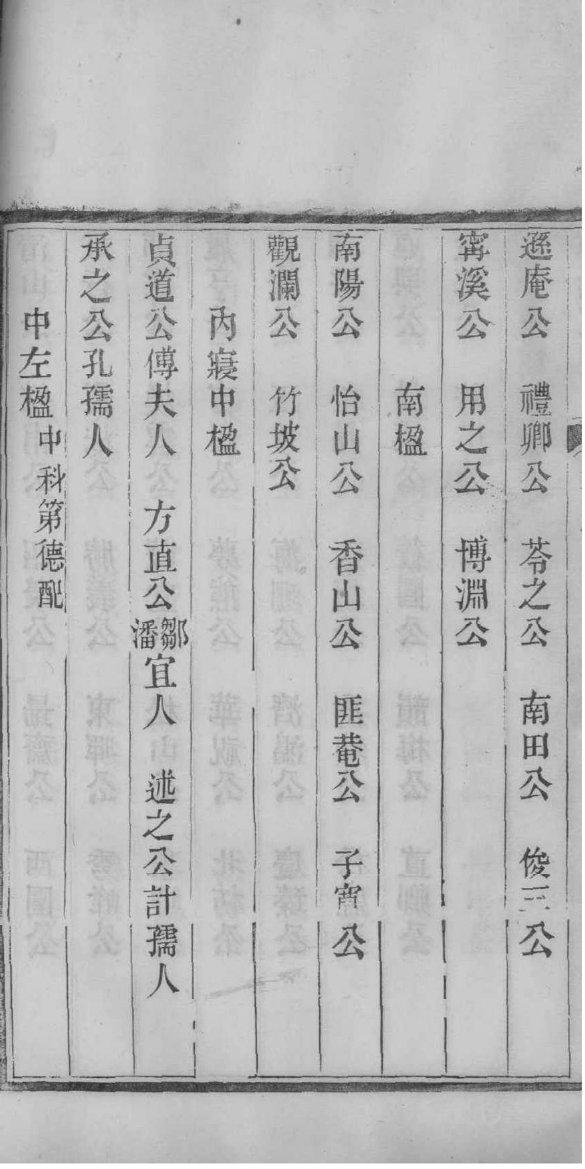 遜庵公　禮卿公　苓之公　南田公　俊三公
甯溪公　用之公　博淵公
南楹
南陽公　怡山公　香山公　匪菴公　子實公
觀瀾公　竹坡公
內寢中楹
貞道公傅夫人　方直公鄒潘宜人　述之公計孺人
承之公孔孺人
中左楹中科第德配